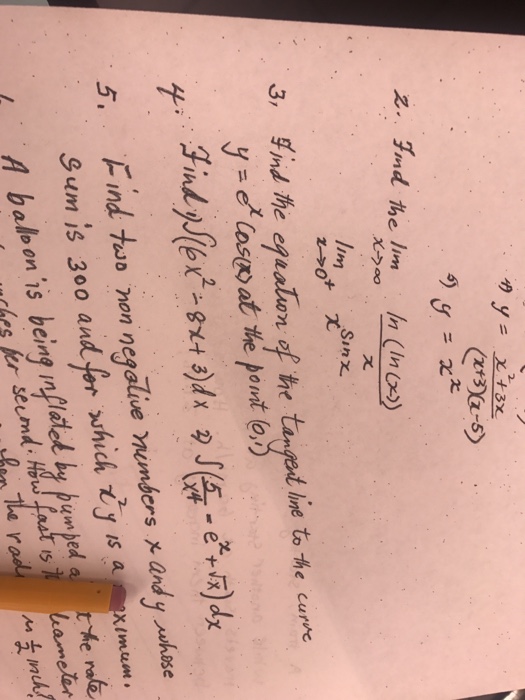 4) y = x²+3x / (x+3)(x-5)
5) y = x^x
2. Find the lim x→∞ ln(ln(x)) / x
lim x→0⁺ x^sinx
3, Find the equation of the tangent line to the curve
y = e^x cos(x) at the point (0,1)
4. Find 1) ∫(6x² - 8x + 3)dx 2) ∫(5/x⁴ - e^x + √x)dx
5. Find two non negative numbers x and y whose
sum is 300 and for which x²y is a ximum.
A balloon is being inflated by pumped a t the rate
inches per second. How fast is t iameter
when the radi is ½ inch?